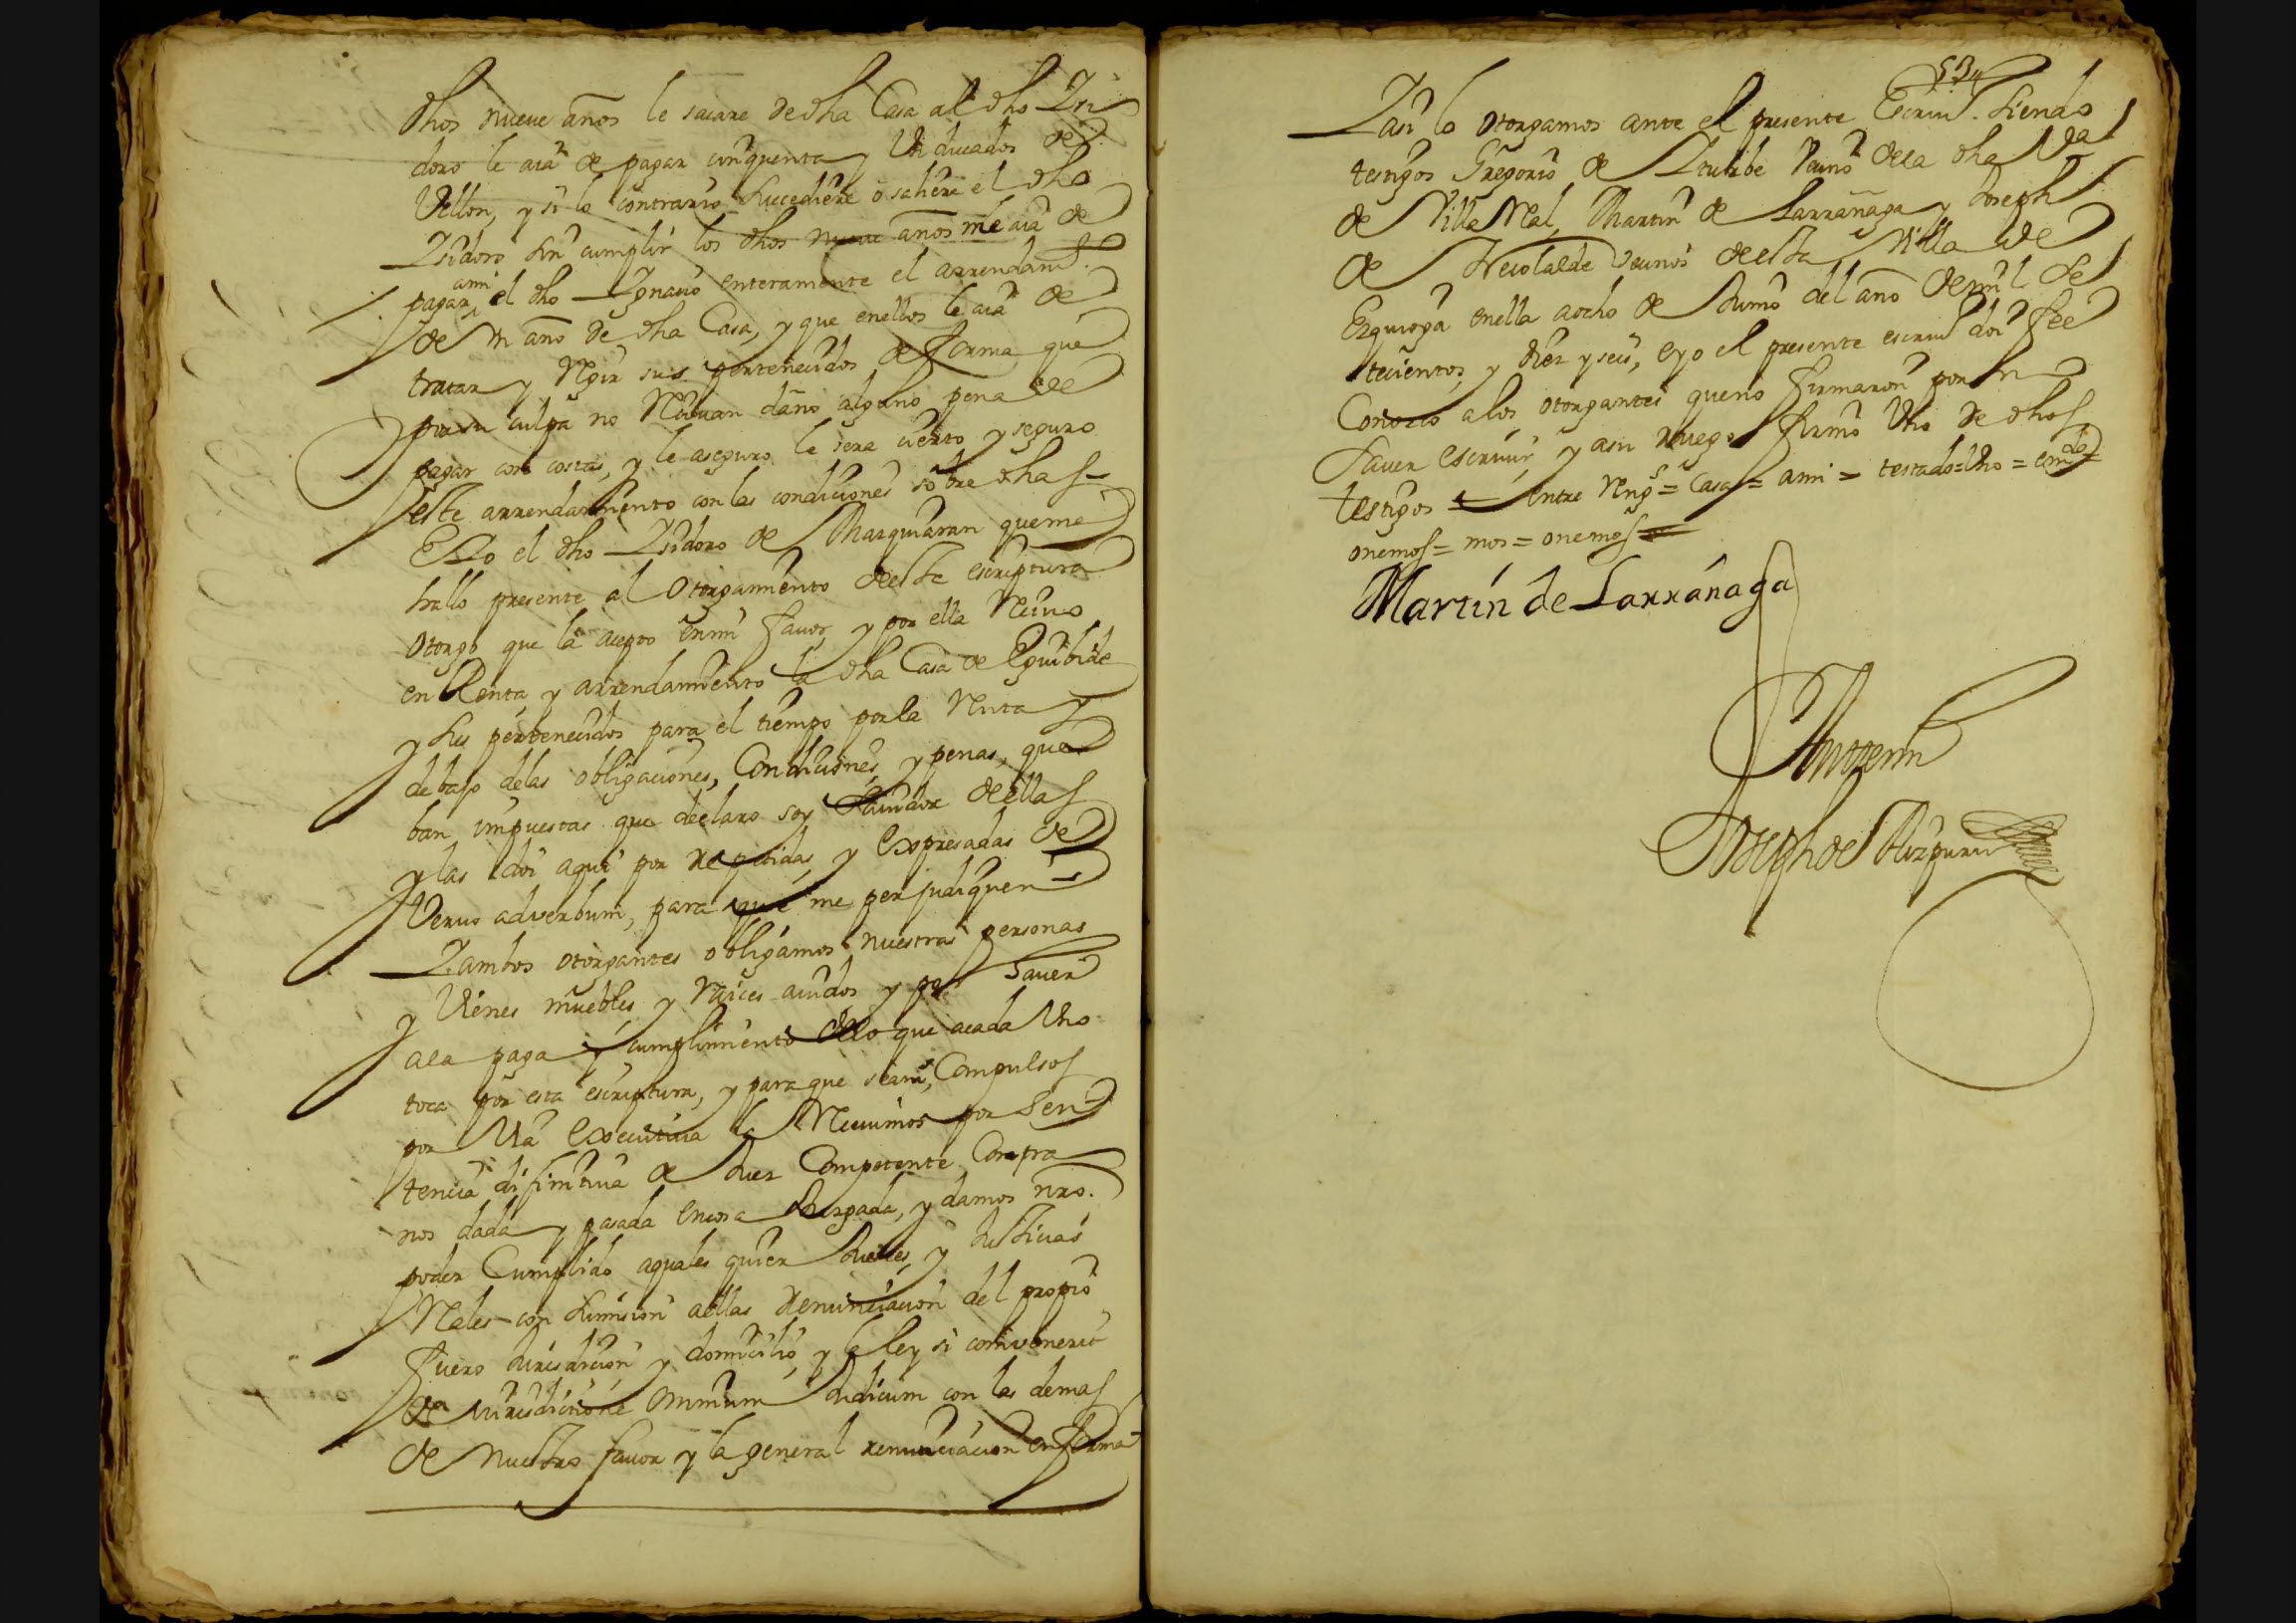 dhos nueue años le sacare de dha Casa al dho Isi
doro le aia de pagar cinquenta y Un ducados de
Vellon, y si lo contrario Sucediere o saliere el dho
Isidoro sin cumplir los dhos nueue años me aia de
ami
pagar el dho Ignacio enteramente el arrendamto.
de Un año de dha Casa, y que enellos le aia de
tratar y Regir sus pertenecidos de forma que
por su culpa no Reciuan daño alguno pena de
pagar con costas, y le aseguro le sera cierto y seguro
este arrendamiento con las condiciones sobre dhas
E Yo el dho Isidoro de Marquiaran que me
hallo presente al Otorgamiento de esta escriptura
Otorgo que la acepto en mi fauor y por ella Reciuo
en Renta, y arrendamiento la dha Casa de Eguibide
y sus pertenecidos para el tiempo por la Renta y
debajo delas obligaciones, Condiciones y penas, que
ban impuestas que declaro soy Sauidor de ellas
y las doi aqui por repetidas, y Expresadas de
Veruo adverbum, para que me perjudiquen
Y ambos otorgantes obligamos nuestras personas
y Vienes muebles y Raices auidos y por hauer
ala paga y cumplimiento de lo que acada Uno
toca por esta escriptura, y para que seamos Compulsos
por Via Executiua la Reciuimos por Sen
tencia difinitiua de Juez Competente Contra
nos dada y pasada en cosa Juzgada, y damos nro.
poder Cumplido aquales quier Jueces, y Justicias
Reales con sumision aellas renunciacion del propio
fuero Jurisdicion y domicilio y la ley si convenerit
de Jurisdictione Omnium Judicum con las demas
de nuestro fauor y la general renunciacion en forma
534
Y asi lo otorgamos ante el presente Escriuo. Siendo
testigos Gregorio de Iturbe Vecino de la dha Va
de Villa Real, Martin de Larrañaga y Joseph
de Necolalde Vecinos de esta Villa de
Ezquioga enella aocho de Junio del año de mil Se
tecientos, y diez y seis, e yo el presente escriuo doi fee
Conozco alos otorgantes que no firmaron por no
Sauer escriuir y asu ruego firmo Uno de dhos
testigos = entre Rengs = Casa = ami = testado = Uno = emdo =
onemos = mos = onemos =
Martin de Larrañaga
Antemi
Joseph de Aizpuru